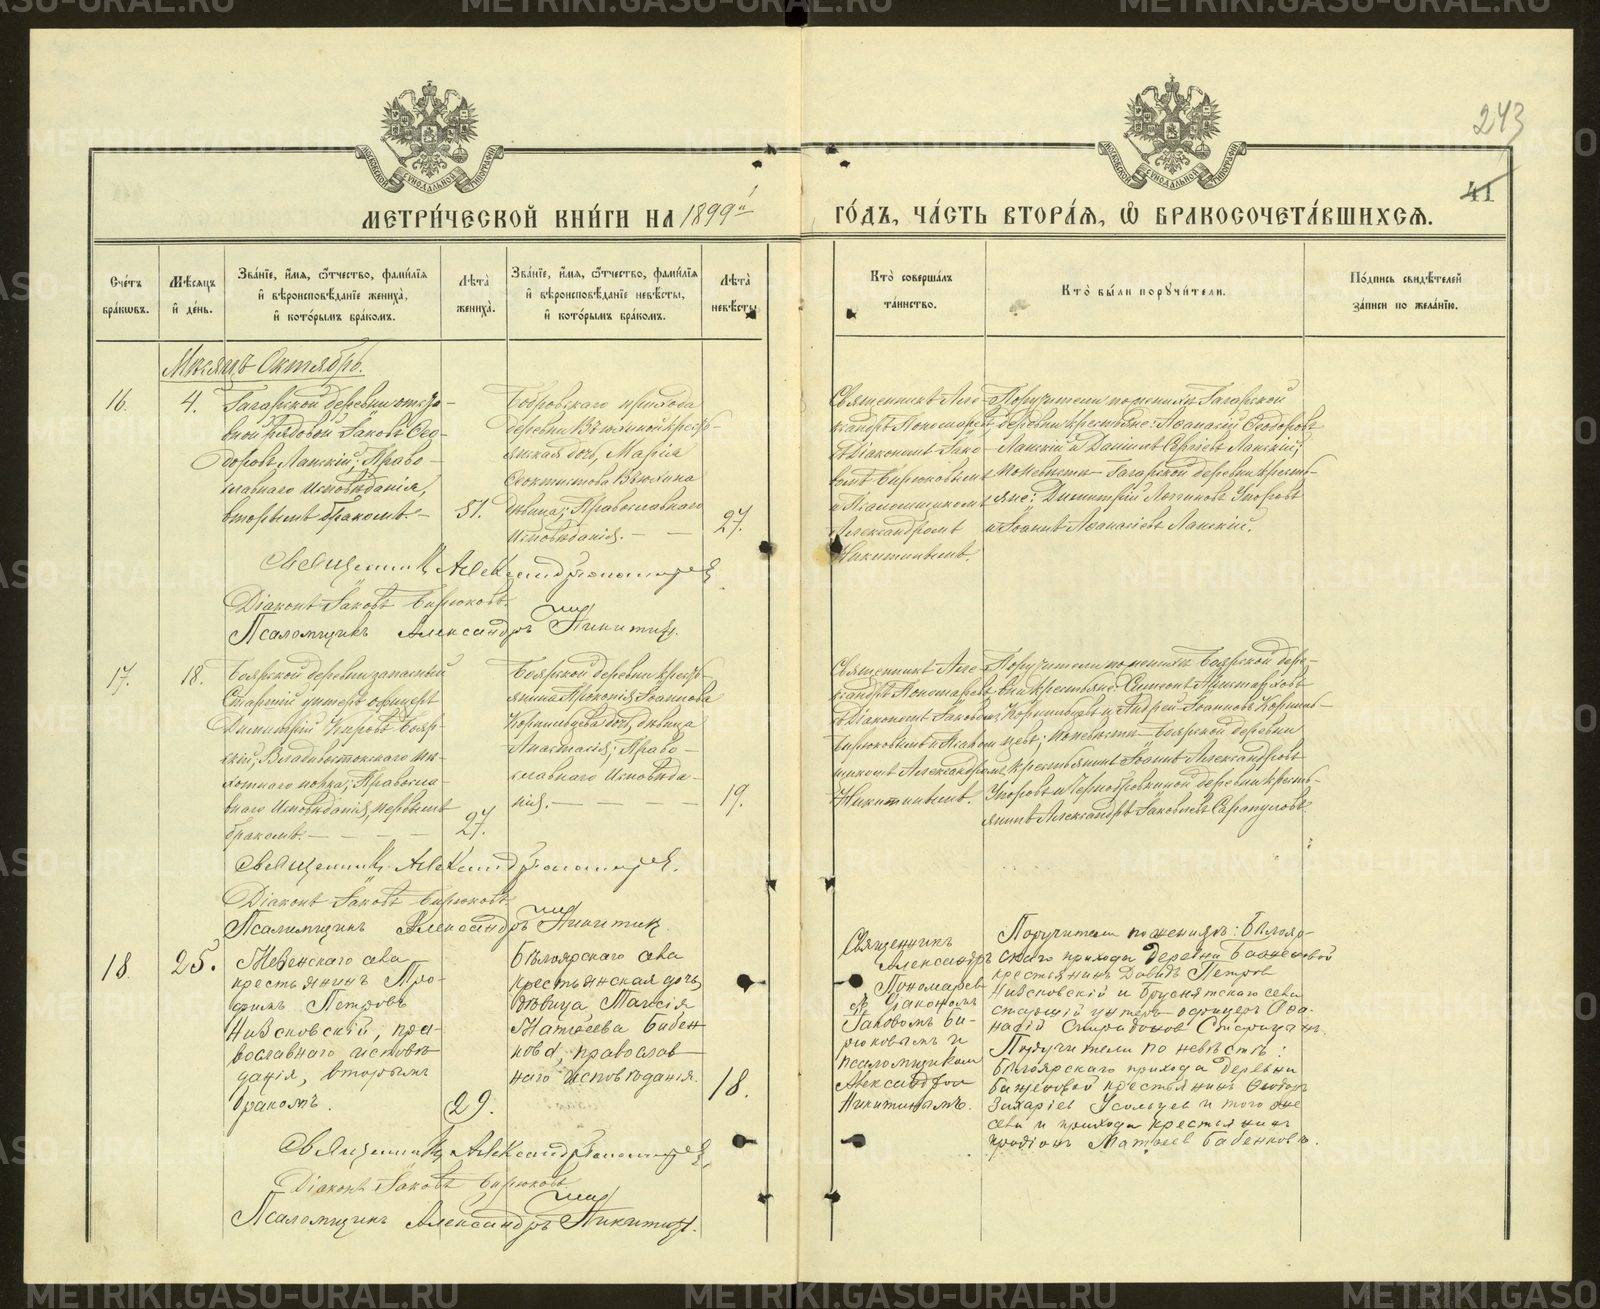 243
41
МЕТРИ́ЧЕСКОЙ КНИ́ГИ НА 1899й ГО́ДЪ, ЧА́СТЬ ВТОРА́Я, Ѽ БРАКОСОЧЕТА́ВШИХСЯ.
Сче́тъ бра́кѡвъ.
Мѣ́сѧцъ и҆ де́нь.
Зва́нїе, и҆́мѧ, ѻ҆́тчество, фами́лїѧ и҆ вѣроисповѣ́данїе жениха̀, и҆ кото́рымъ бра́комъ.
Лѣ́та жениха̀.
Зва́нїе, и҆́мѧ, ѻ҆́тчество, фами́лїѧ и҆ вѣроисповѣ́данїе невѣ́сты, и҆ кото́рымъ бра́комъ.
Лѣ́та невѣ́сты.
Кто̀ соверша́лъ та́инство.
Кто̀ бы́ли порꙋчи́тели.
По́дпись свидѣ́телей за́писи по жела́нїю.
Мѣсяцъ Октябрь.
16.
4.
Гагарской деревни отста-
вной рядовой Іаковъ Ѳео-
доровъ Ланскій; Право-
славнаго Исповѣданія,
вторымъ бракомъ.
51.
Бобровскаго прихода
деревни Вьюхиной кресть-
янская дочь, Марія
Ѳеоктистова Вьюхина
дѣвица; Православнаго
Исповѣданія.
27.
Священникъ Але-
ксандръ Пономаревъ
съ Діакономъ Іако-
вомъ Бирюковымъ
и Псаломщикомъ
Александромъ
Никитинымъ.
Поручители по женихѣ Гагарской
деревни крестьяне: Аѳанасій Ѳеодоровъ
Ланскій и Даніилъ Сергѣевъ Ланскій;
по невѣстѣ Гагарской деревни кресть-
яне: Димитрій Логиновъ Упоровъ
и Іоаннъ Аѳанасіевъ Ланскій.
Священникъ Александръ Пономаревъ
Діаконъ Іаковъ Бирюковъ.
Псаломщикъ Александръ Никитинъ.
17.
18.
Боярской деревни запасный
Старшій унтеръ офицеръ
Димитрій Боярс-
кій, Владивостокскаго пѣ-
хотнаго полка; Правосла-
внаго Исповѣданія, первымъ
бракомъ.
27.
Боярской деревни кресть-
янина Прокопія Іоаннова
Корнильцева дочь, дѣвица
Анастасія; Право-
славнаго Исповѣда-
нія.
19.
Священникъ Але-
ксандръ Пономаревъ
съ Діакономъ Іаковомъ
Бирюковымъ и Псалом-
щикомъ Александромъ
Никитинымъ.
Поручители по женихѣ Боярской дере-
вни крестьяне: Симеонъ Аристарховъ
Корнильцевъ и Андрей Іоанновъ Корниль-
цевъ; по невѣстѣ Боярской деревни
крестьянинъ Іоаннъ Александровъ
Упоровъ и Чернобровкиной деревни кресть-
янинъ Александръ Іаковлевъ Сарапуловъ.
Священникъ Александръ Пономаревъ.
Діаконъ Іаковъ Бирюковъ.
Псаломщикъ Александръ Никитинъ.
18
25.
села
крестьянинъ Тро-
фимъ Петровъ
Низковскій, пра-
вославнаго исповѣ
данія, вторымъ
бракомъ.
29.
Бѣлоярскаго села
крестьянская дочь,
дѣвица Таисія
Матѳеева Бабен
нова, православ-
наго исповѣданія.
18.
Священникъ
Александръ
Пономаревъ
съ Діакономъ
Іаковомъ Би-
рюковымъ и
псаломщикомъ
Александромъ
Никитинымъ.
Поручители по женихѣ: Бѣлояр-
скаго прихода деревни Баженовой
крестьянинъ Давидъ Петровъ
Низковскій и Бруснятскаго села
старшій унтеръ-офицеръ Аѳа-
насій Спиридоновъ Старицынъ.
Поручители по невѣстѣ:
Бѣлоярскаго прихода деревни
Баженовой крестьянинъ Ѳеодоръ
Захаріевъ Усольцевъ и того же
села и прихода крестьянинъ
Матѳеевъ Бабенновъ.
Священникъ Александръ Пономаревъ.
Діаконъ Іаковъ Бирюковъ.
Псаломщикъ Александръ Никитинъ.
METRIKI.GASO-URAL.RU